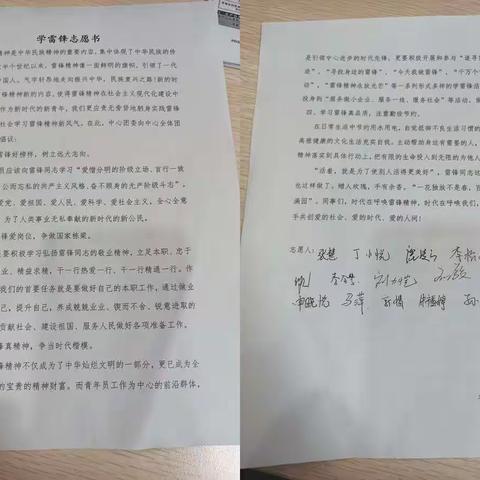 学雷锋志愿书
精神是中华民族精神的重要内容，集中体现了中华民族的传
半个世纪以来，雷锋精神像一面鲜明的旗帜，引领了一代
中国人，气宇轩昂地走向振兴中华，民族复兴之路！新的时
锋精神新的内容，使得雷锋精神在社会主义现代化建设中
作为新时代的新青年，我们更应责无旁贷地躬身实践雷锋
社会学习雷锋精神新风气。在此，中心团委向中心全体团
倡议：
雷锋好榜样，树立远大志向。
员应该向雷锋同志学习“爱憎分明的阶级立场、言行一致
公而忘私的共产主义风格、奋不顾身的无产阶级斗志”，
爱党、爱祖国、爱人民、爱科学、爱社会主义，全心全意
，为了人类事业无私奉献的新时代的新公民。
锋爱岗位，争做国家栋梁。
要积极学习弘扬雷锋同志的敬业精神，立足本职、忠于
业、精益求精，干一行热爱一行、干一行精通一行。作
我们的首要任务就是要做好自己的本职工作，通过敬业
己，提升自己，养成兢兢业业、锲而不舍、锐意进取的
贡献社会、建设祖国、服务人民做好各项准备工作。
锋真精神，争当时代楷模。
锋精神不仅成为了中华灿烂文明的一部分，更已成为全
的宝贵的精神财富。而青年员工作为中心的前沿群体，
是引领中心进步的时代先锋，更要积极开展和参与“追寻
迹”、“寻找身边的雷锋”、“今天我做雷锋”、“千万个
”、“雷锋精神永放光芒”等一系列形式多样的学雷锋活
投身到“服务微小企业、服务一线、服务社会”等活动
四、学习雷锋真品质，注重勤俭节约。
在日常生活中节约用水用电，自觉抵御不良生活习惯的
高雅健康的文化生活充实自我。主动帮助身边有需要的人，
精神落实到具体行动上，把有限的生命投入到无限的为他人
“活着，就是为了使别人活得更美好”，雷锋同志这
也这样做了。赠人玫瑰，手有余香。“一花独放不是春，百
满园”。同事们，时代在呼唤雷锋精神，时代在呼唤我们，
手共创爱的社会、爱的时代、爱的人间！
志愿人：